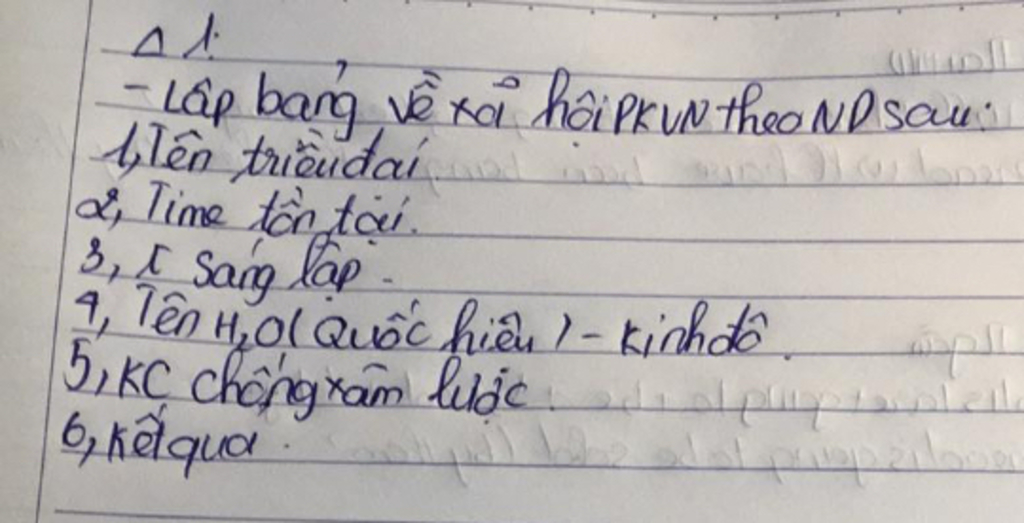 Δ 1:
- Lập bảng về xã hội PKVN theo ND sau:
1, Tên triều đại
2, Time tồn tại.
3, sáng lập.
4, Tên H2O (Quốc hiệu) - Kinh đô.
5, KC chống xâm lược.
6, Kết quả.